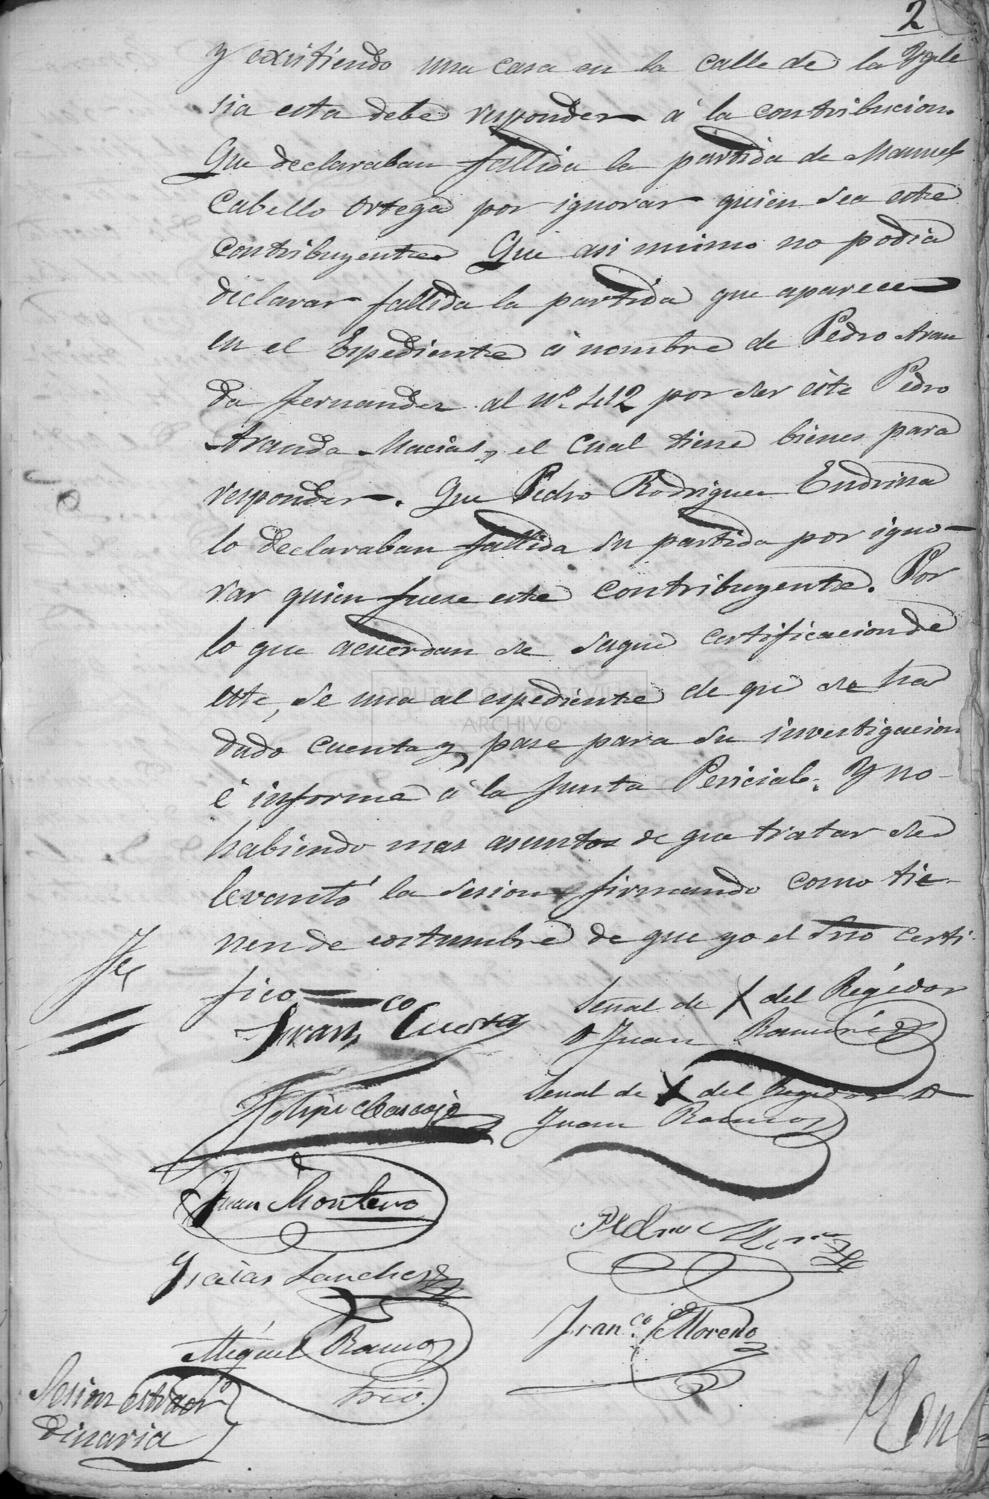 2
y existiendo una casa en la calle de la Ygle
sia esta debe responder á la contribucion.
Que declaraban fallida la partida de Manuel
Cabello Ortega por ignorar quien sea este
contribuyente. Que asi mismo no podia
declarar fallida la partida que aparece
en el Espediente á nombre de Pedro Aran
da Fernandez al nº 412 por ser este Pedro
Aranda Macias, el cual tiene bienes para
responder. Que Pedro Rodriguez Endrina
lo declaraban fallida su partida por igno-
rar quien fuese este contribuyente. Por
lo que acuerdan se saque certificacion de
este, se una al espediente de que se ha
dado cuenta y pase para su investigacion
é informe á la Junta Pericial. Y no
habiendo mas asuntos de que tratar se
levantó la sesion firmando como tie-
nen de costumbre de que yo el Srio certi-
fico
Señal de X del Regidor
D Juan Ramirez
Franco Cuesta
Señal de X del Regidor D
Juan Ramos
Felipe Cascajo
Juan Montero
Pedro
Isaias Sanchez
Franco Moreno
Miguel Ramos
Srio.
Sesion estraor
dinaria
En
DIPUTACIÓN DE SEVILLA
ARCHIVO